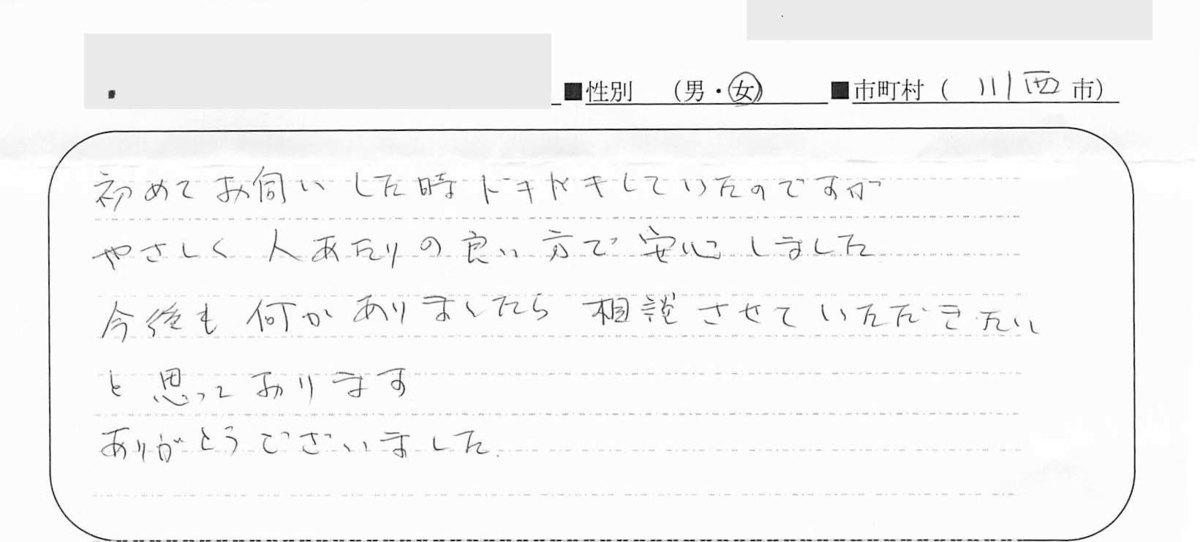 ■性別 (男・女) ■市町村 ( 川西 市)
初めてお伺いした時ドキドキしていたのですが
やさしく人あたりの良い方で安心しました
今後も何かありましたら相談させていただきたい
と思っております
ありがとうございました.